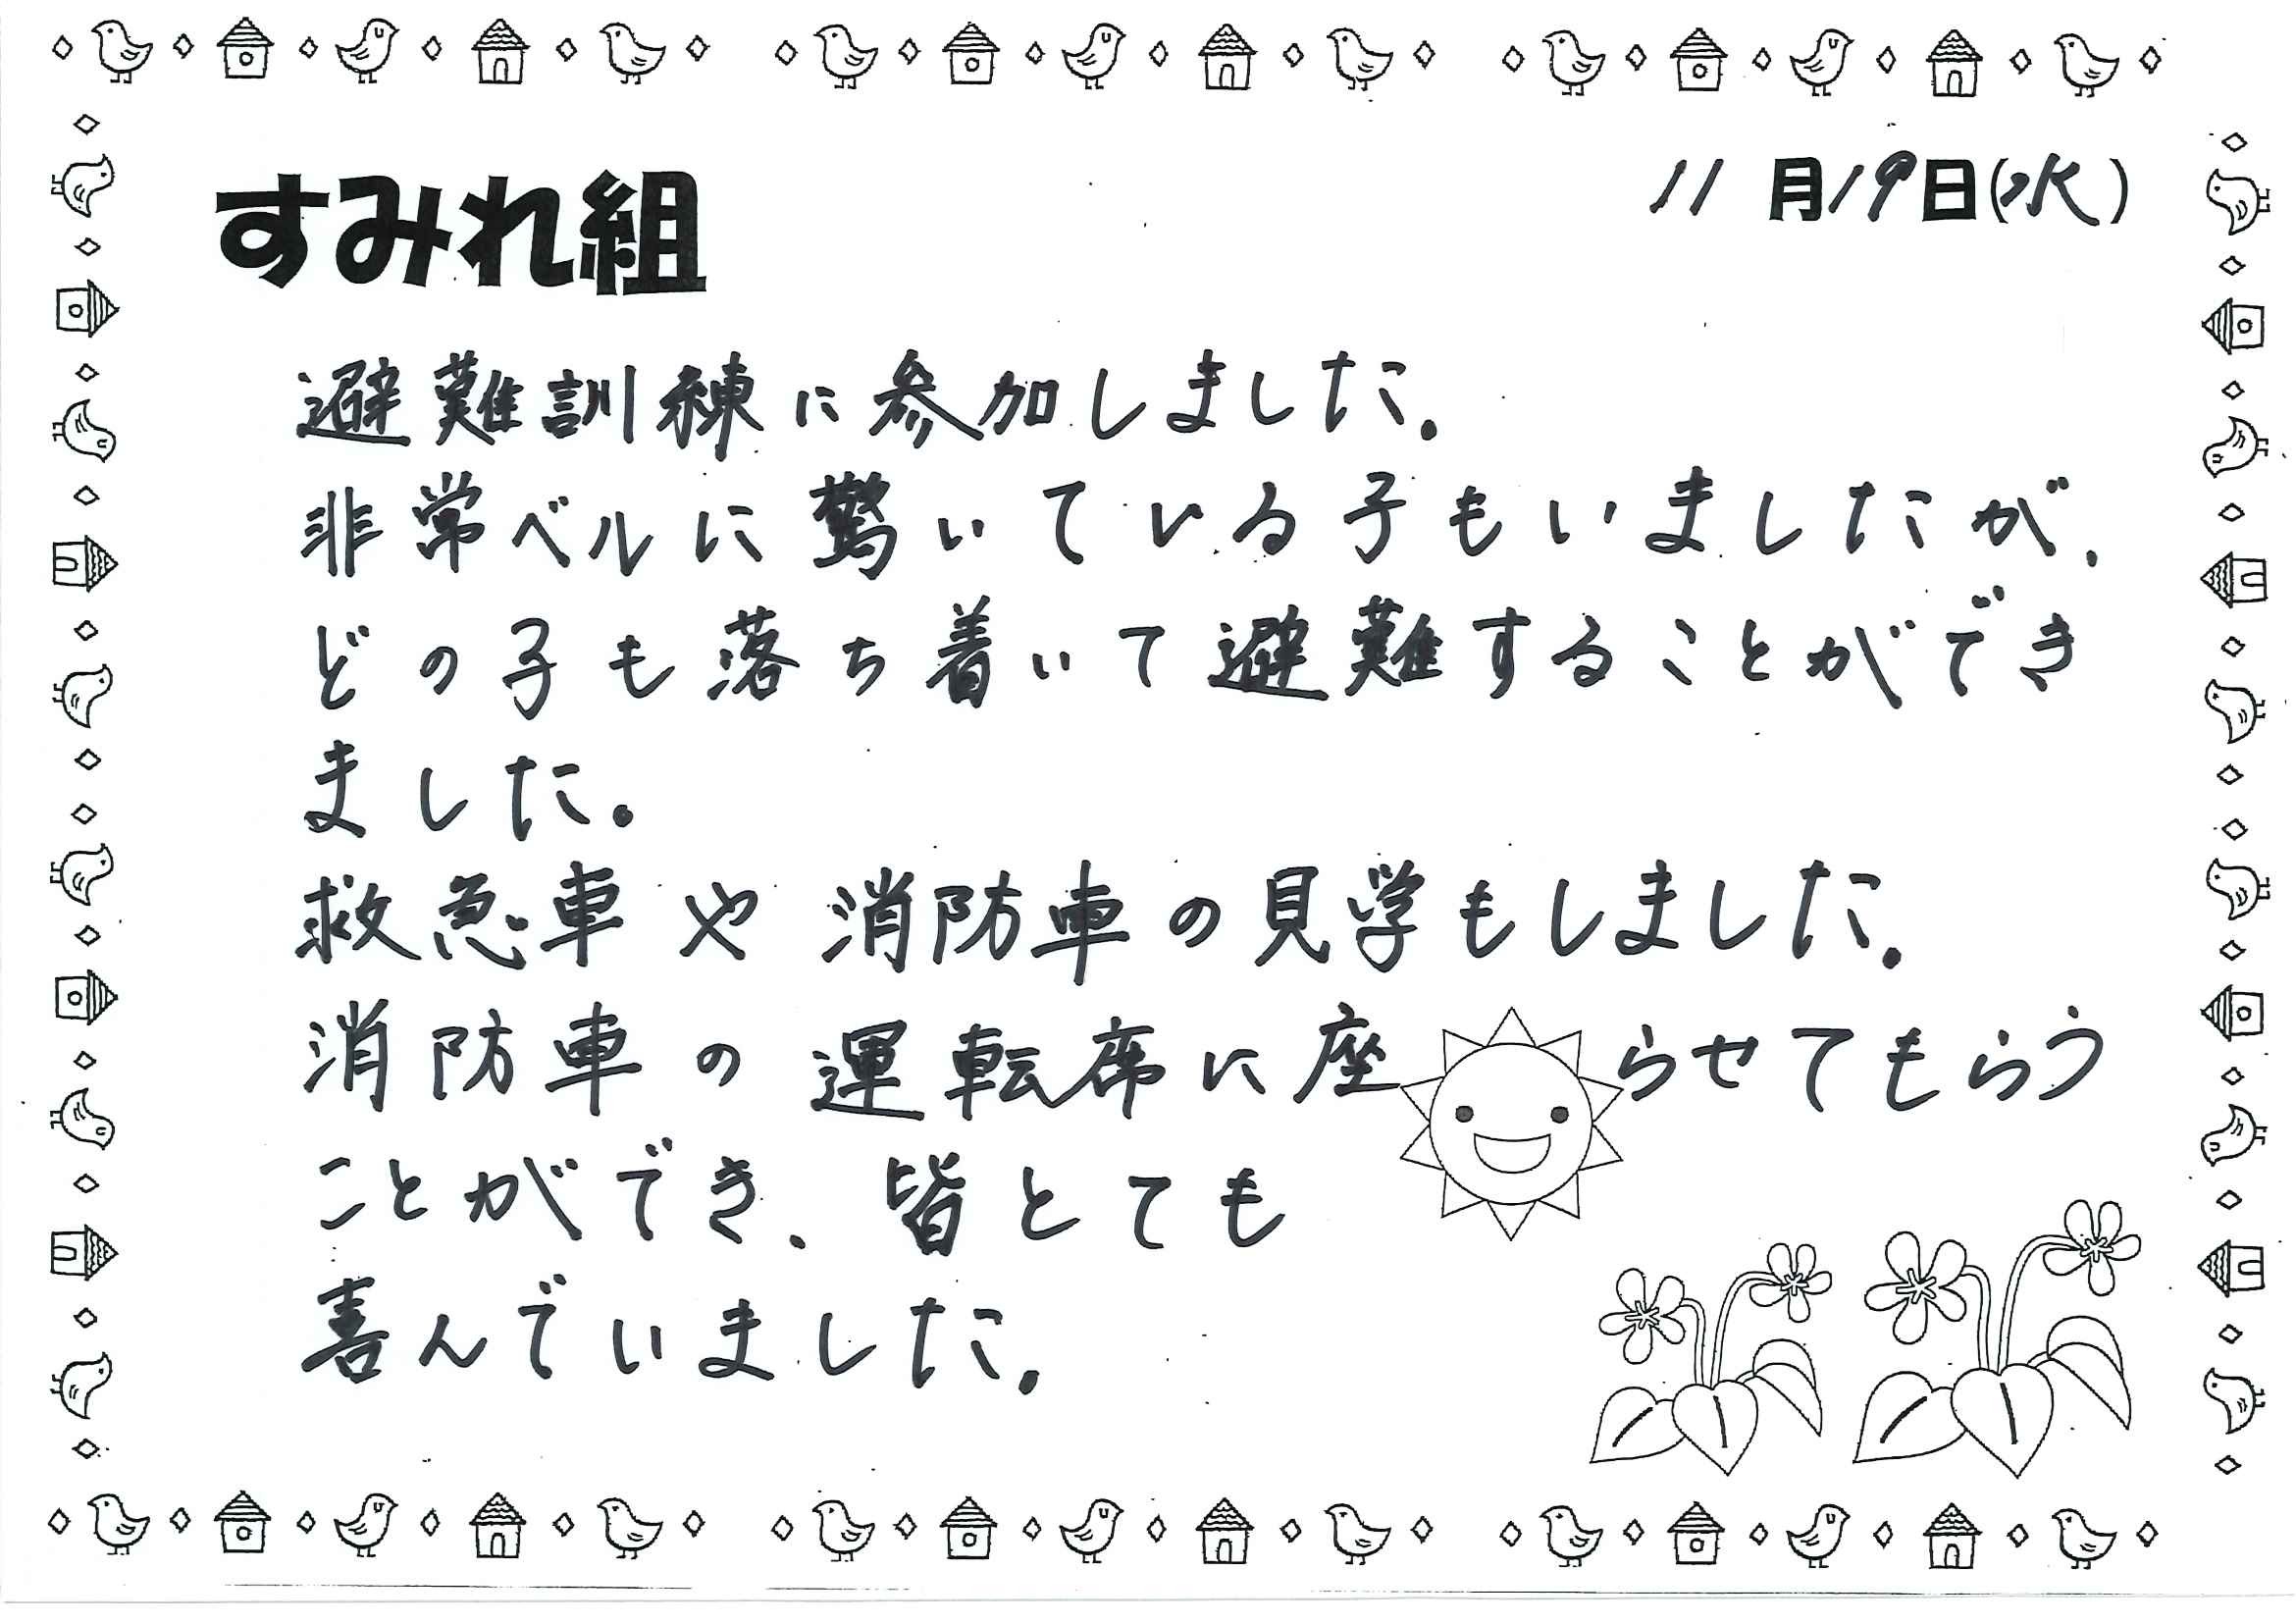 すみれ組
11月19日(水)
避難訓練に参加しました。
非常ベルに驚いている子もいましたが、
どの子も落ち着いて避難することができ
ました。
救急車や消防車の見学もしました。
消防車の運転席に座らせてもらう
ことができ、皆とても
喜んでいました。